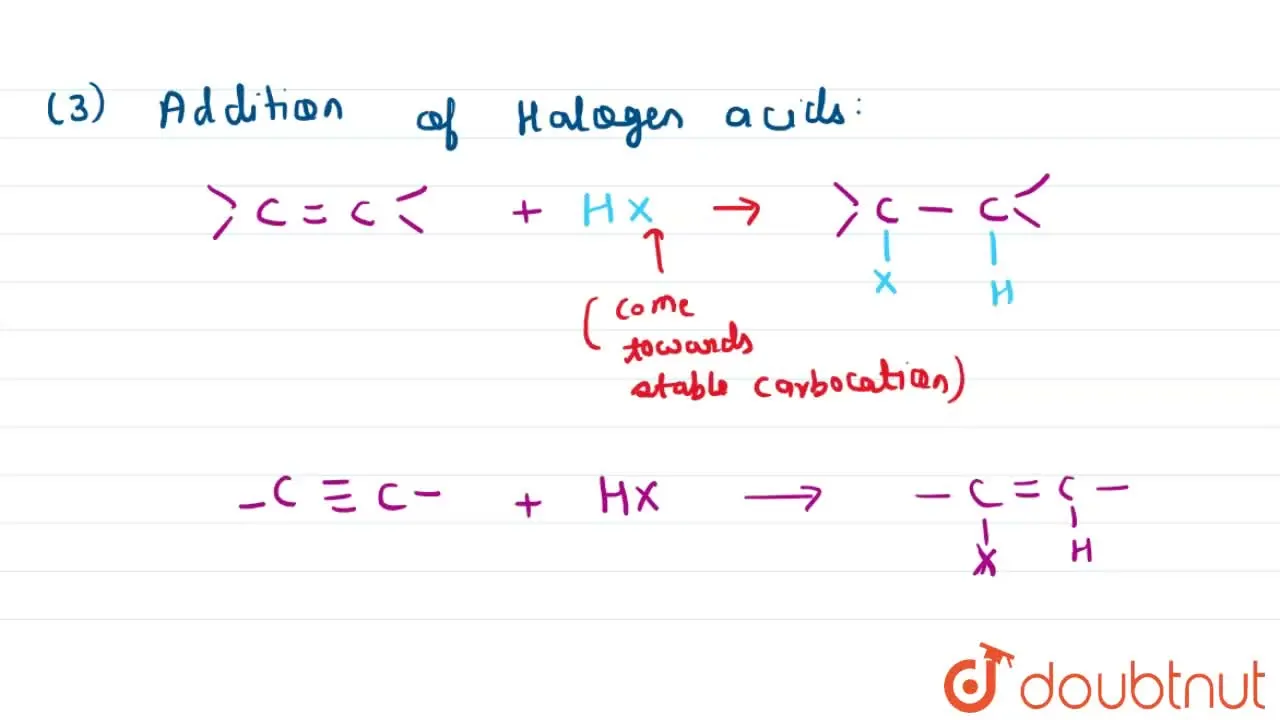 (3) Addition of Halogen acids:
>C = C< + HX → >C - C<
X H
(come
towards
stable carbocation)
-C ≡ C- + HX → -C = C-
X H
doubtnut